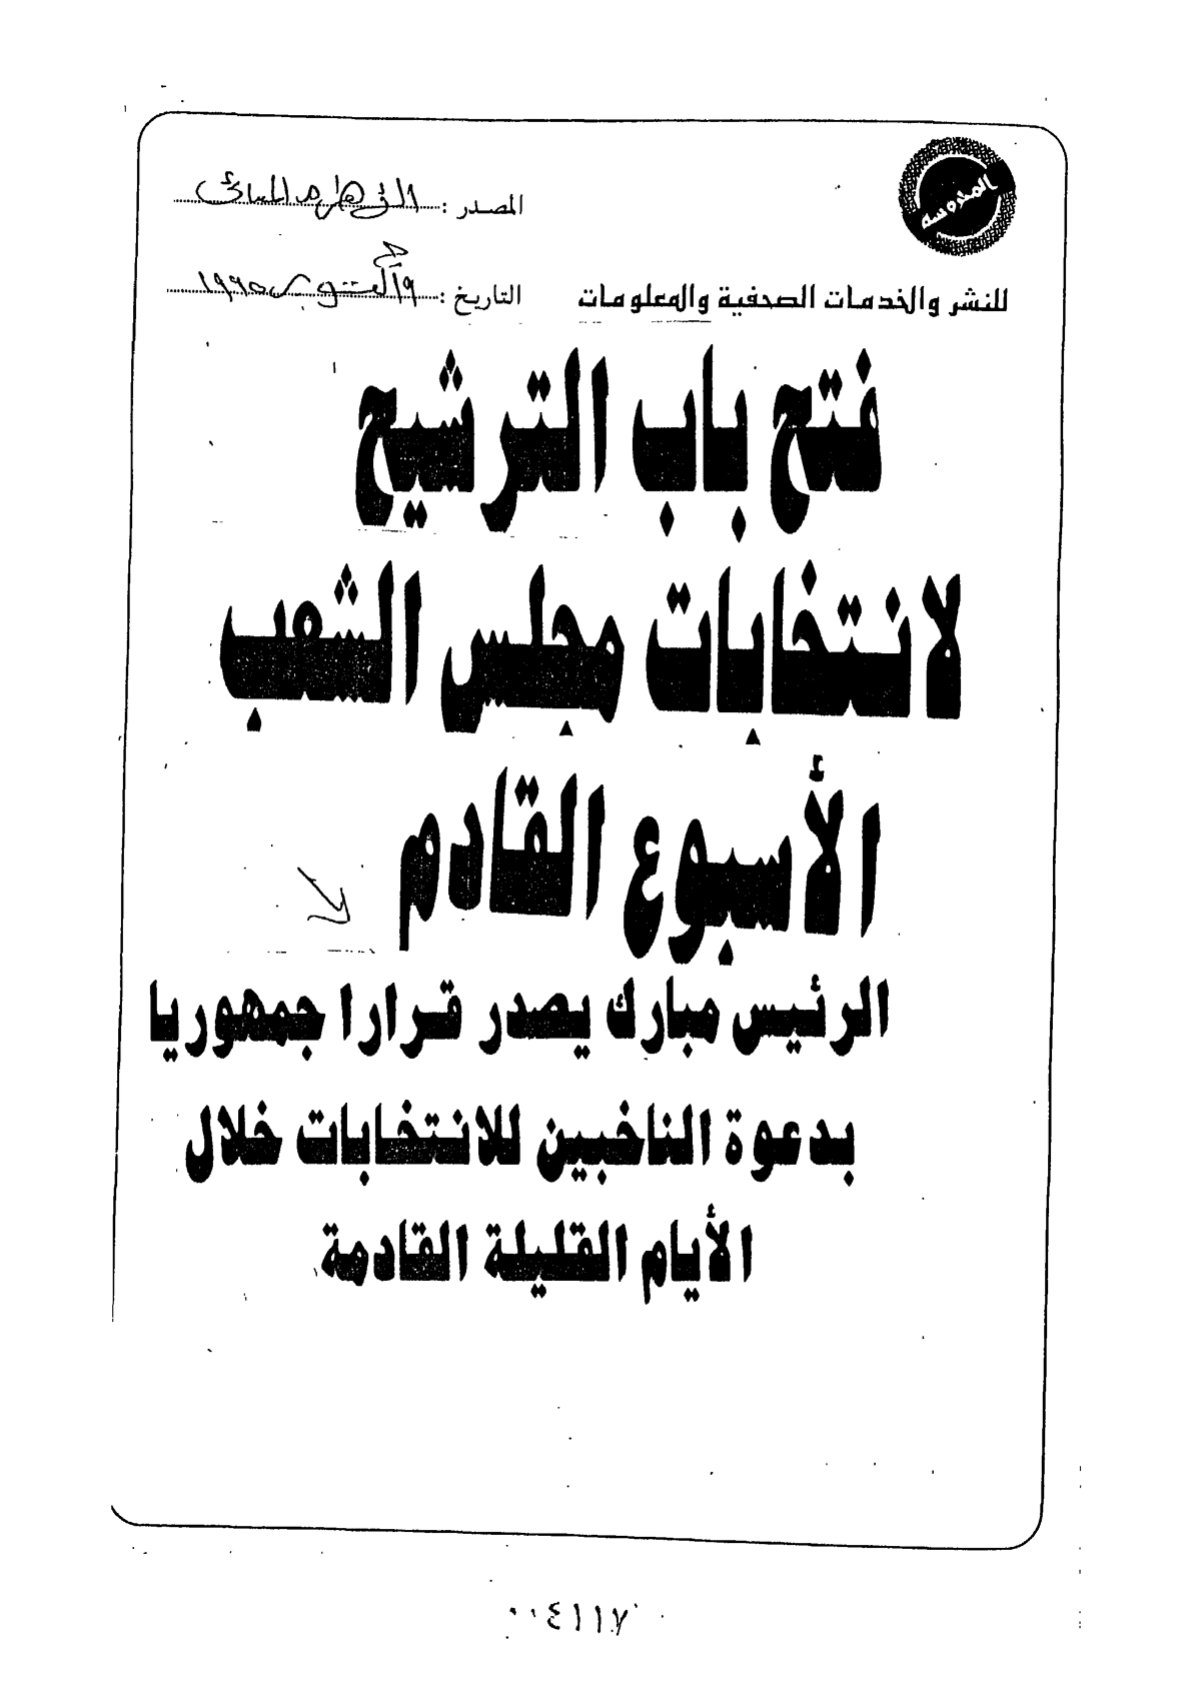 المحروسة
المصدر : الأهرام المسائى
للنشر والخدمات الصحفية والمعلومات
التاريخ : ١٩ أكتوبر ١٩٩٥
فتح باب الترشيح
لانتخابات مجلس الشعب
الأسبوع القادم
الرئيس مبارك يصدر قرارا جمهوريا
بدعوة الناخبين للانتخابات خلال
الأيام القليلة القادمة
٤١١٧